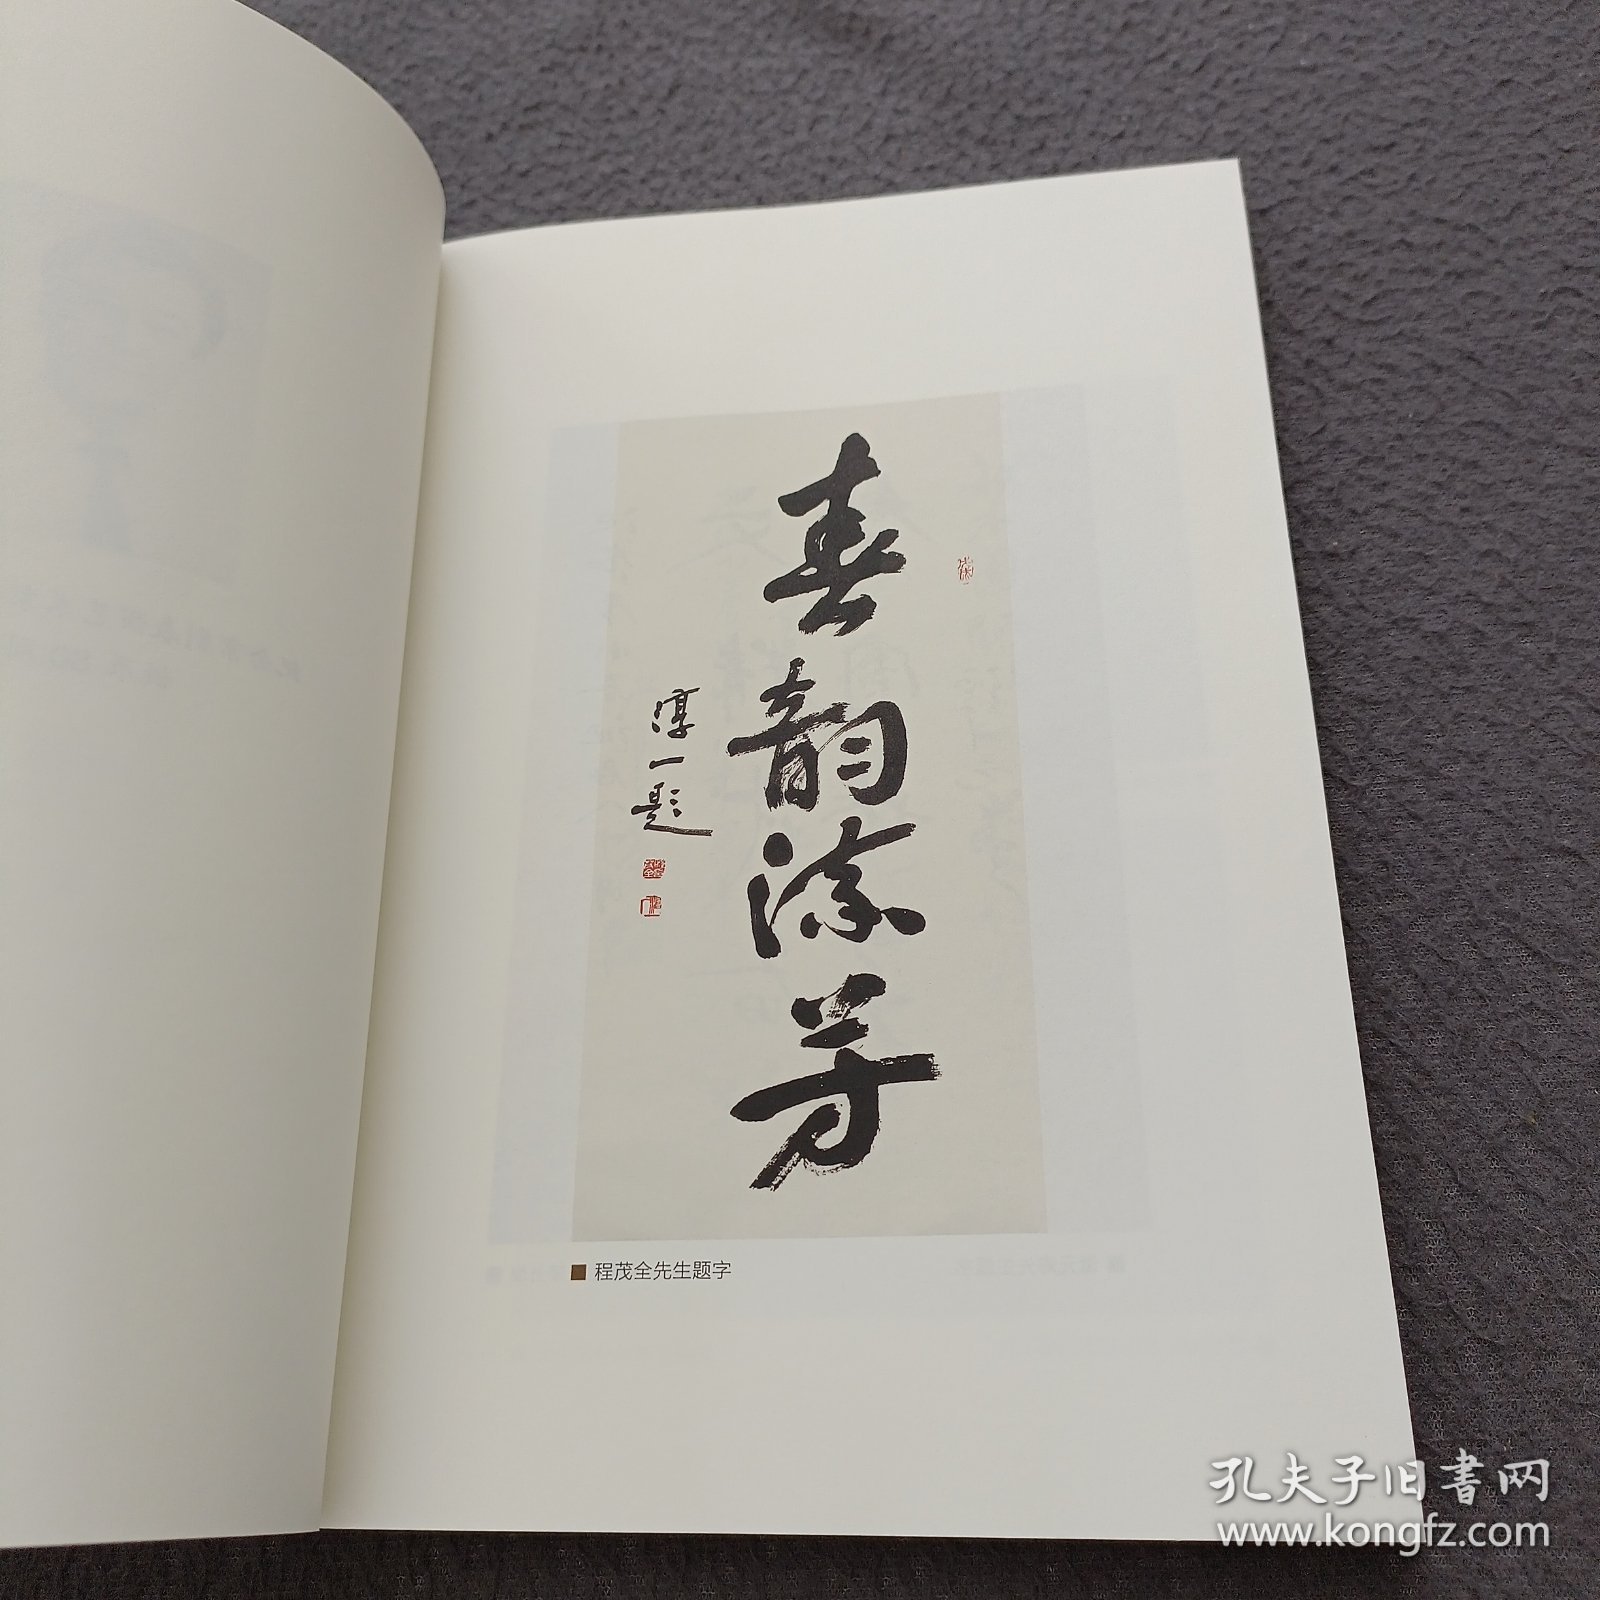 春韵流芳
淳一题
程茂全先生题字
孔夫子旧书网
www.kongfz.com